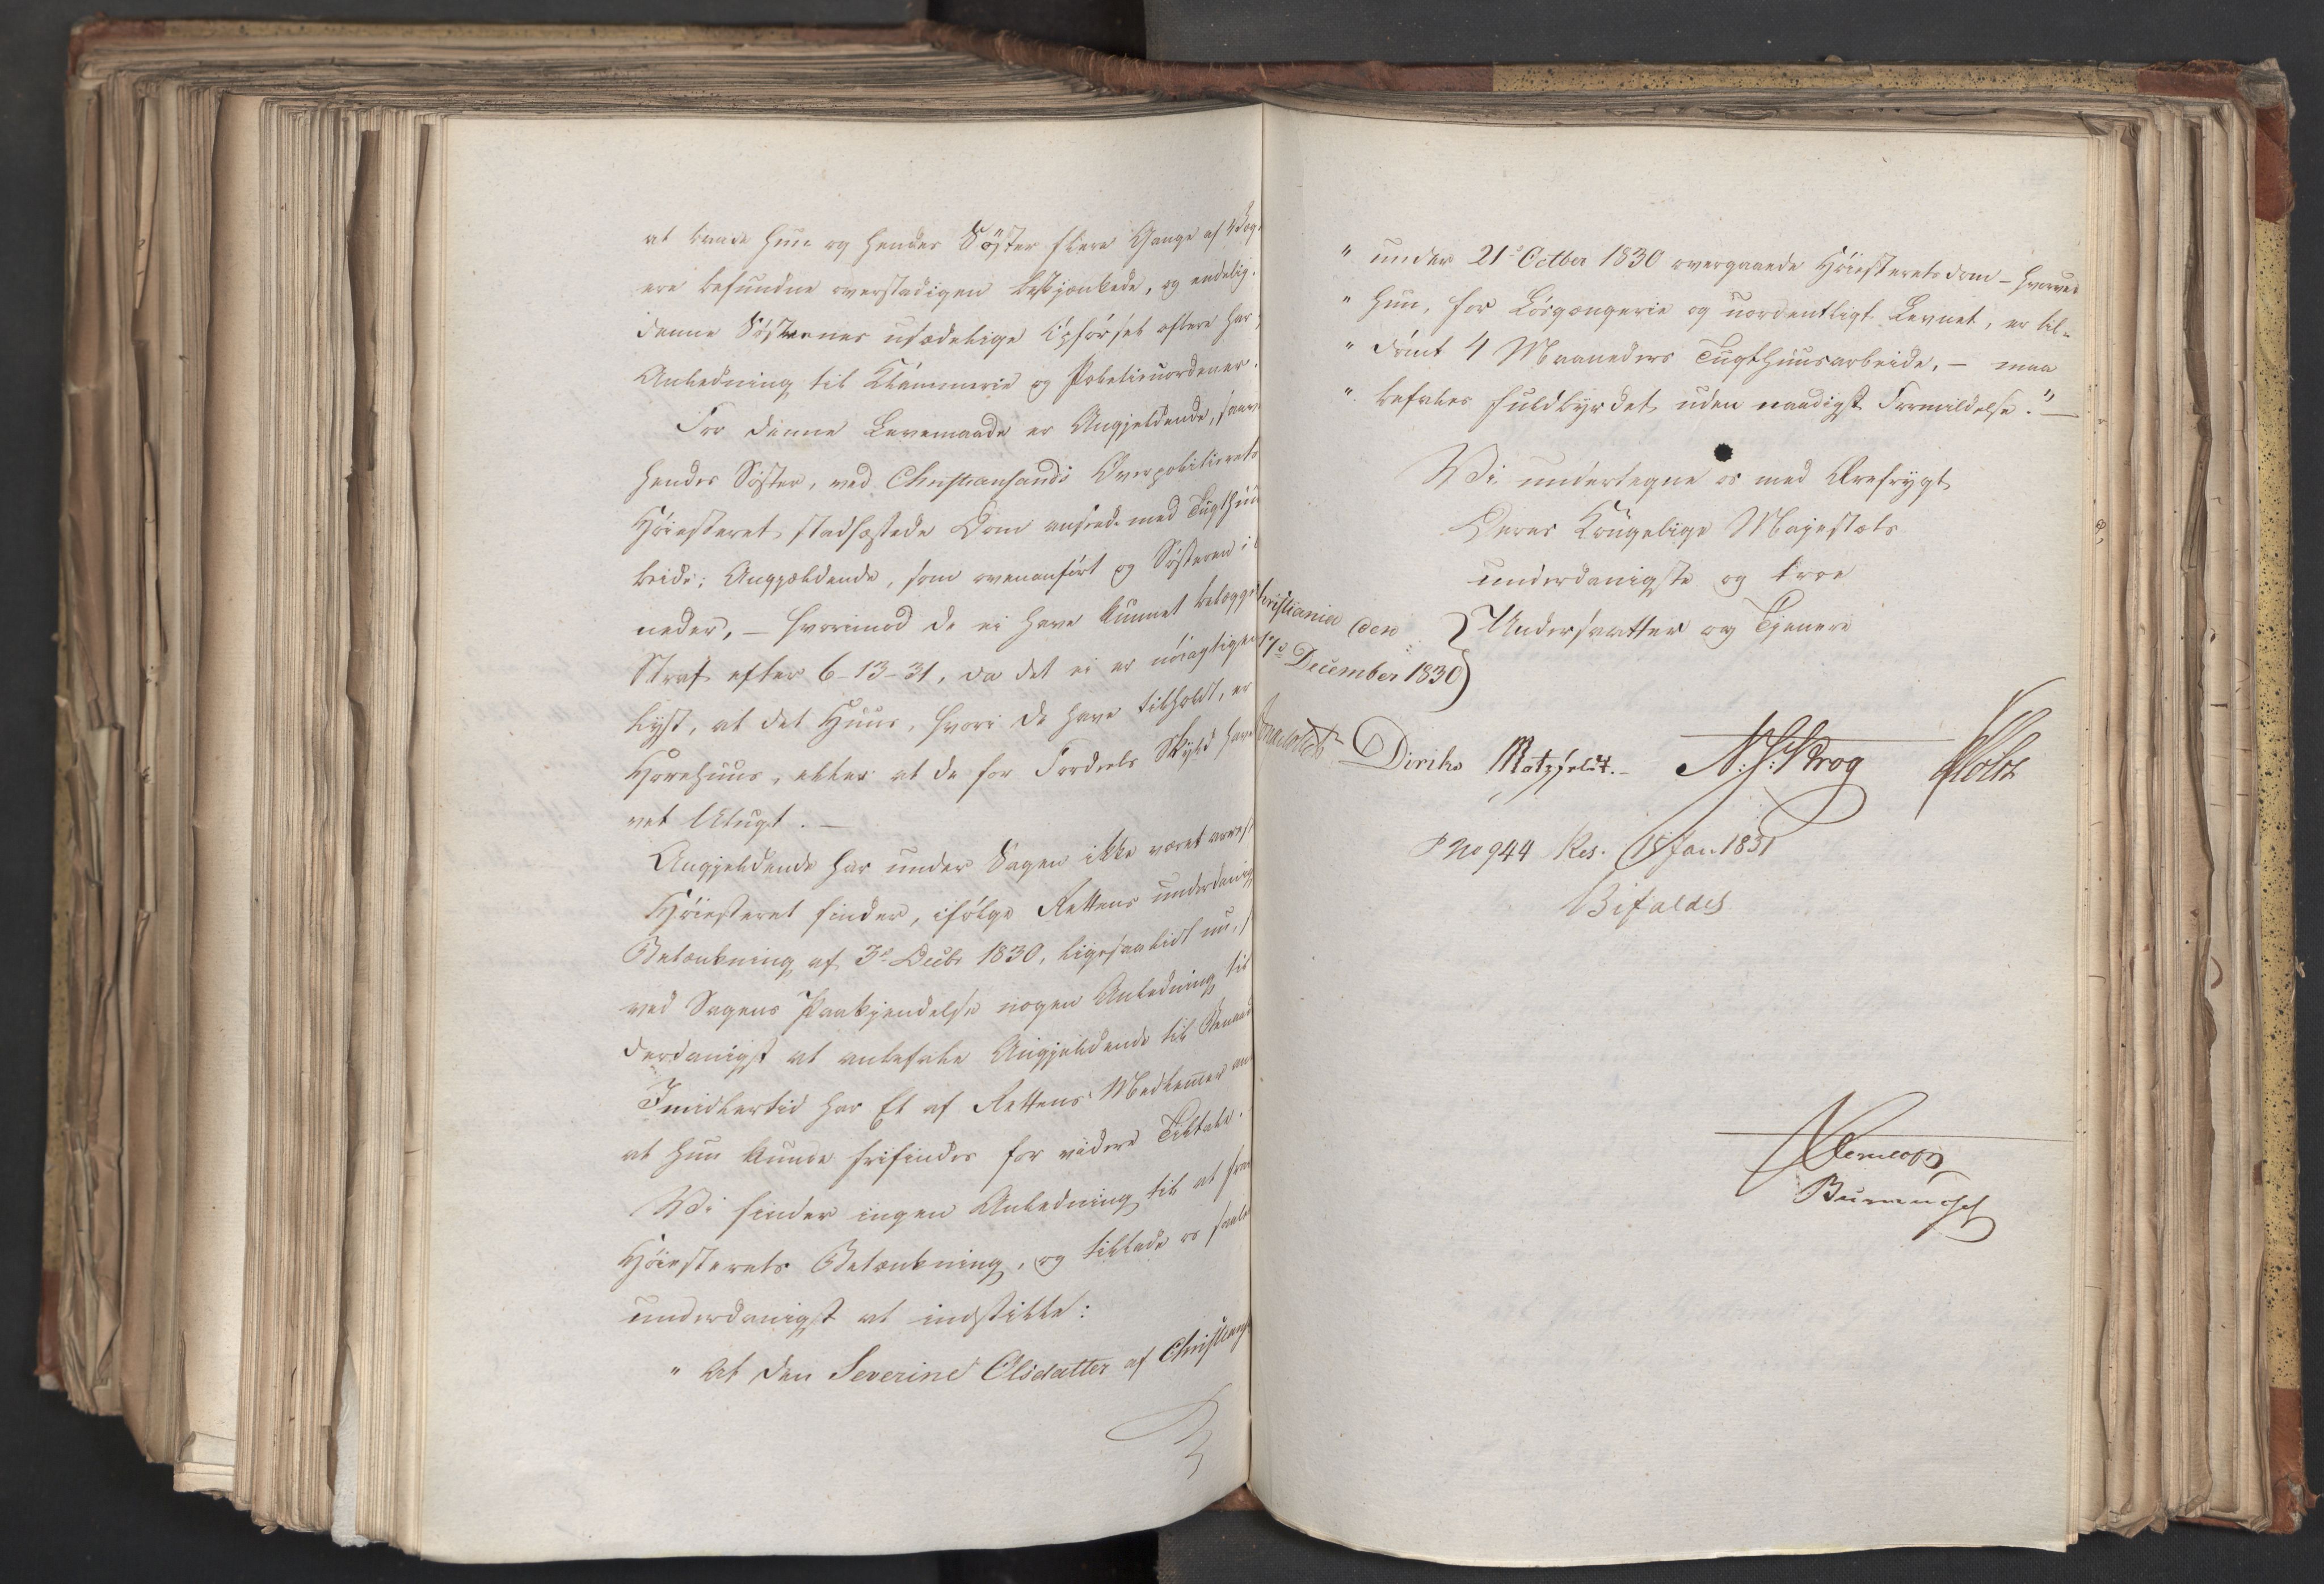 at baade hun og hendes Søster flere Gange af Vægt
ere befundne overstadigen beskjænkede, og endelig.
denne Søstrenes usædelige Opførsel oftere har
Anledning til Klammerie og Politieuordener.
For denne Levemaade er Angjeldende, saavel
hendes Søster, ved Christiansands Overpolitierets
Høiesteret stadfæstede Dom anseede med Tugthuus
beide; Angjældende, som ovenanført og Søsteren i
neder, — hvorimod de ei have kunnet belægges
Straf efter 6-13-31, da det ei er nøiagtigen
lyst, at det Huus, hvori de have tilholdt, er
Horehuus, eller at de for Fordeels Skyld have
vet Utugt. —
Angjeldende har under Sagen ikke været arrest
Høiesteret finder, ifølge Rettens underdanig
Betænkning af 3d Decbr 1830, ligesaalidt nu,
ved Sagens Paakjendelse nogen Anledning til
derdanigst at anbefale Angjeldende til Benaad
Imidlertid har Et af Rettens Medlemmer
at hun kunde frifindes for videre Tiltale.
Vi finder ingen Anledning til at fra
Høiesterets Betænkning, og tillade os saaled
underdanigst at indstille:
" At den Severine Olsdatter af Christians
" under 21de Octber 1830 overgaaede Høiesteretsdom — hvorved
" hun, for Løsgængerie og uordentligt Levnet, er til-
" dømt 4 Maaneders Tugthuusarbeide, — maa
" befales fuldbyrdet uden naadigst Formildelse." —
Vi undertegne os med Ærefrygt
Deres Kongelige Majestæts
underdanigste og troe
Undersaatter og Tjenere
Christiania den
17de December 1830
Diriks Motzfeldt. N. J. Krog Holst
P No 944 Res. 15 Jan. 1831
Bifaldes